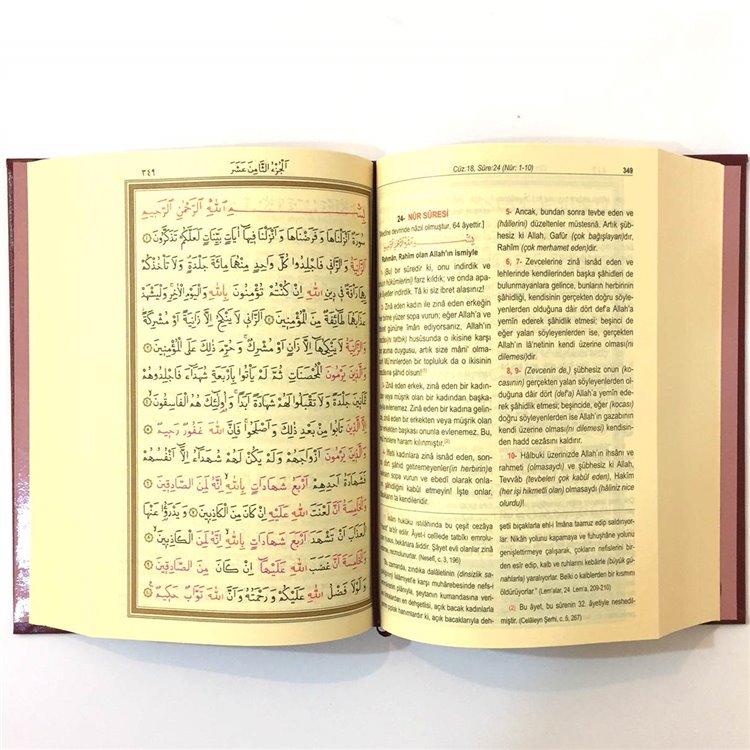 ٣٤٩
اَلْجُزْءُ الثَّامِنَ عَشَرَ
بِسْــــــمِ اللّٰهِ الرَّحْمٰنِ الرَّحِيمِ
سُورَةٌ اَنْزَلْنَاهَا وَفَرَضْنَاهَا وَاَنْزَلْنَا فِيهَٓا اٰيَاتٍ بَيِّنَاتٍ لَعَلَّكُمْ تَذَكَّرُونَ ﴿١﴾
اَلزَّانِيَةُ وَالزَّانِي فَاجْلِدُوا كُلَّ وَاحِدٍ مِنْهُمَا مِائَةَ جَلْدَةٍ وَلَا تَأْخُذْكُمْ
بِهِمَا رَأْفَةٌ فِي دِينِ اللّٰهِ اِنْ كُنْتُمْ تُؤْمِنُونَ بِاللّٰهِ وَالْيَوْمِ الْاٰخِرِ وَلْيَشْهَدْ
عَذَابَهُمَا طَٓائِفَةٌ مِنَ الْمُؤْمِنِينَ ﴿٢﴾ اَلزَّانِي لَا يَنْكِحُ اِلَّا زَانِيَةً اَوْ مُشْرِكَةً
وَالزَّانِيَةُ لَا يَنْكِحُهَٓا اِلَّا زَانٍ اَوْ مُشْرِكٌ وَحُرِّمَ ذٰلِكَ عَلَى الْمُؤْمِنِينَ ﴿٣﴾
وَالَّذِينَ يَرْمُونَ الْمُحْصَنَاتِ ثُمَّ لَمْ يَأْتُوا بِاَرْبَعَةِ شُهَدَٓاءَ فَاجْلِدُوهُمْ
ثَمَانِينَ جَلْدَةً وَلَا تَقْبَلُوا لَهُمْ شَهَادَةً اَبَدًا وَاُولٰٓئِكَ هُمُ الْفَاسِقُونَ ﴿٤﴾
اِلَّا الَّذِينَ تَابُوا مِنْ بَعْدِ ذٰلِكَ وَاَصْلَحُوا فَاِنَّ اللّٰهَ غَفُورٌ رَحِيمٌ ﴿٥﴾
وَالَّذِينَ يَرْمُونَ اَزْوَاجَهُمْ وَلَمْ يَكُنْ لَهُمْ شُهَدَٓاءُ اِلَّٓا اَنْفُسُهُمْ
فَشَهَادَةُ اَحَدِهِمْ اَرْبَعُ شَهَادَاتٍ بِاللّٰهِ اِنَّهُ لَمِنَ الصَّادِقِينَ ﴿٦﴾
وَالْخَامِسَةُ اَنَّ لَعْنَتَ اللّٰهِ عَلَيْهِ اِنْ كَانَ مِنَ الْكَاذِبِينَ ﴿٧﴾ وَيَدْرَؤُا عَنْهَا
الْعَذَابَ اَنْ تَشْهَدَ اَرْبَعَ شَهَادَاتٍ بِاللّٰهِ اِنَّهُ لَمِنَ الْكَاذِبِينَ ﴿٨﴾
وَالْخَامِسَةَ اَنَّ غَضَبَ اللّٰهِ عَلَيْهَٓا اِنْ كَانَ مِنَ الصَّادِقِينَ ﴿٩﴾
وَلَوْلَا فَضْلُ اللّٰهِ عَلَيْكُمْ وَرَحْمَتُهُ وَاَنَّ اللّٰهَ تَوَّابٌ حَكِيمٌ ﴿١٠﴾
Cüz:18, Sûre:24 (Nûr: 1-10)
349
24- NÛR SÛRESİ
devrinde nâzil olmuştur, 64 âyettir.]
Rahmân, Rahîm olan Allah'ın ismiyle
(Bu) bir sûredir ki, onu indirdik ve
hükümlerini) farz kıldık; ve onda
apaçık âyetler indirdik. Tâ ki siz ibret alasınız!
Zinâ eden kadın ile zinâ eden erkeğin
birine yüzer sopa vurun; eğer Allah'a ve
gününe îmân ediyorsanız, Allah'ın
tatbîki) husûsunda o ikisine karşı
acıma duygusu, artık size mâni' olma-
Mü'minlerden bir topluluk da o ikisinin
şâhid olsun!
Zinâ eden erkek, zinâ eden bir kadın-
veya müşrik bir kadından başka-
evlenemez. Zinâ eden bir kadına gelin-
zinâ eden bir erkek veya müşrik olan
erkekten başkası onunla evlenemez. Bu,
mü'minlere haram kılınmıştır.(2)
iffetli kadınlara zinâ isnâd eden, son-
şâhid getiremeyenler(in herbirin)e
sopa vurun ve artık onların şâhid-
kabûl etmeyin! İşte onlar,
fâsıkların ta kendileridir.
5- Ancak, bundan sonra tevbe eden ve
(hâllerini) düzeltenler müstesnâ. Artık şüb-
hesiz ki Allah, Gafûr (çok bağışlayan)dır,
Rahîm (çok merhamet eden)dir.
6, 7- Zevcelerine zinâ isnâd eden ve
lehlerinde kendilerinden başka şâhidleri de
bulunmayanlara gelince, bunların herbirinin
şâhidliği, kendisinin gerçekten doğru söyle-
yenlerden olduğuna dâir dört def'a Allah'a
yemîn ederek şâhidlik etmesi; beşinci de,
eğer yalan söyleyenlerden ise, gerçekten
Allah'ın lâ'netinin kendi üzerine olması(nı
dilemesi)dir.
8, 9- (Zevcenin de,) şübhesiz onun (ko-
casının) gerçekten yalan söyleyenlerden ol-
duğuna dâir dört (def'a) Allah'a yemîn ede-
rek şâhidlik etmesi; beşincide, eğer (kocası)
doğru söyleyenlerden ise Allah'ın gazabının
kendi üzerine olması(nı dilemesi), kendisin-
den hadd cezâsını kaldırır.
10- Hâlbuki üzerinizde Allah'ın ihsânı ve
rahmeti (olmasaydı) ve şübhesiz ki Allah,
Tevvâb (tevbeleri çok kabûl eden), Hakîm
(her işi hikmetli olan) olmasaydı (hâliniz nice
olurdu)!
İslâm hukūku ıstılâhında bu çeşit cezâya
ta'bîr edilir. Âyet-i celîlede tatbîki emrolu-
nan, bekârlara âiddir. Şâyet evli olanlar zinâ
(Nesefî, c. 3, 196)
Bu zamanda, zındıka dalâletinin (dinsizlik sa-
İslâmiyet'e karşı muhârebesinde nefs-i
plânıyla, şeytanın kumandasına veri-
en dehşetlisi, açık bacak kadınlarla
hanımlardır ki, açık bacaklarıyla deh-
şetli bıçaklarla ehl-i îmâna taarruz edip saldırıyor-
lar. Nikâh yolunu kapamaya ve fuhşhâne yolunu
genişlettirmeye çalışarak, çokların nefislerini bir-
den esir edip, kalb ve ruhlarını kebâirle (büyük gü-
nahlarla) yaralıyorlar. Belki o kalblerden bir kısmını
öldürüyorlar." (Lem'alar, 24. Lem'a, 209-210)
(2) Bu âyet, bu sûrenin 32. âyetiyle neshedil-
miştir. (Celâleyn Şerhi, c. 5, 267)